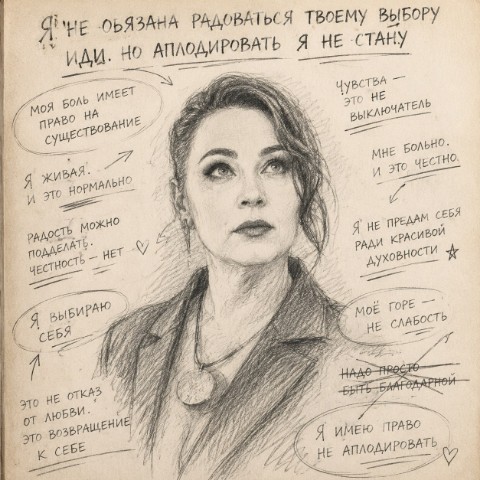 Я НЕ ОБЯЗАНА РАДОВАТЬСЯ ТВОЕМУ ВЫБОРУ
ИДИ. НО АПЛОДИРОВАТЬ Я НЕ СТАНУ
МОЯ БОЛЬ ИМЕЕТ
ПРАВО НА
СУЩЕСТВОВАНИЕ
Я ЖИВАЯ.
И ЭТО НОРМАЛЬНО
РАДОСТЬ МОЖНО
ПОДДЕЛАТЬ.
ЧЕСТНОСТЬ — НЕТ
Я ВЫБИРАЮ
СЕБЯ
ЭТО НЕ ОТКАЗ
ОТ ЛЮБВИ.
ЭТО ВОЗВРАЩЕНИЕ
К СЕБЕ
ЧУВСТВА —
ЭТО НЕ
ВЫКЛЮЧАТЕЛЬ
МНЕ БОЛЬНО.
И ЭТО ЧЕСТНО.
Я НЕ ПРЕДАМ СЕБЯ
РАДИ КРАСИВОЙ
ДУХОВНОСТИ
МОЁ ГОРЕ —
НЕ СЛАБОСТЬ
НАДО ПРОСТО
БЫТЬ БЛАГОДАРНОЙ
Я ИМЕЮ ПРАВО
НЕ АПЛОДИРОВАТЬ